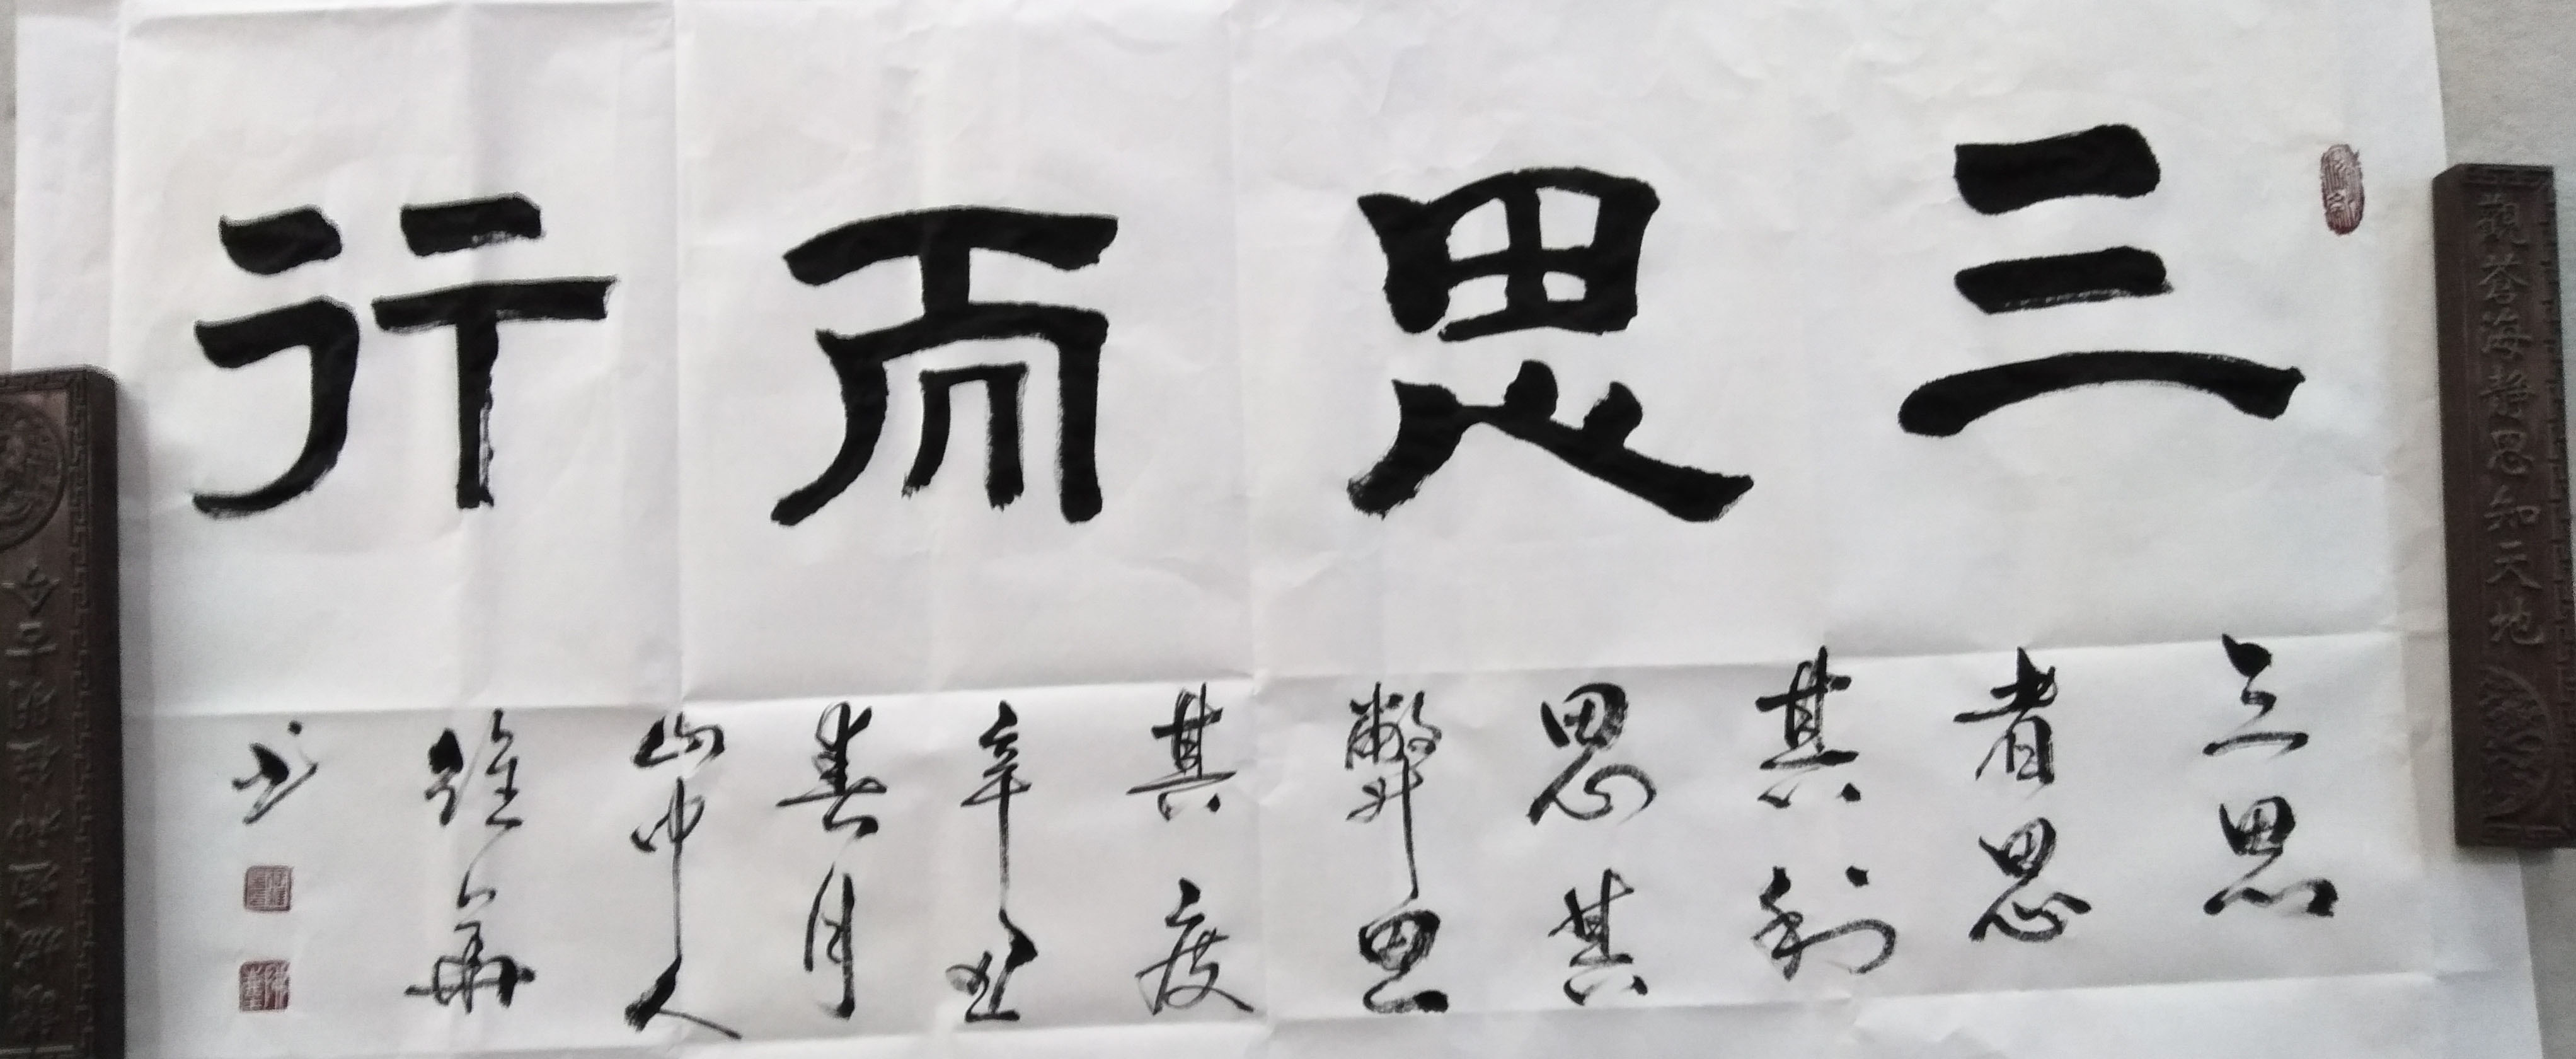 三思而行
三思
者思
其利
思其
弊思
其度
辛丑
春月
山中人
維華
书
觀蒼海靜思知天地